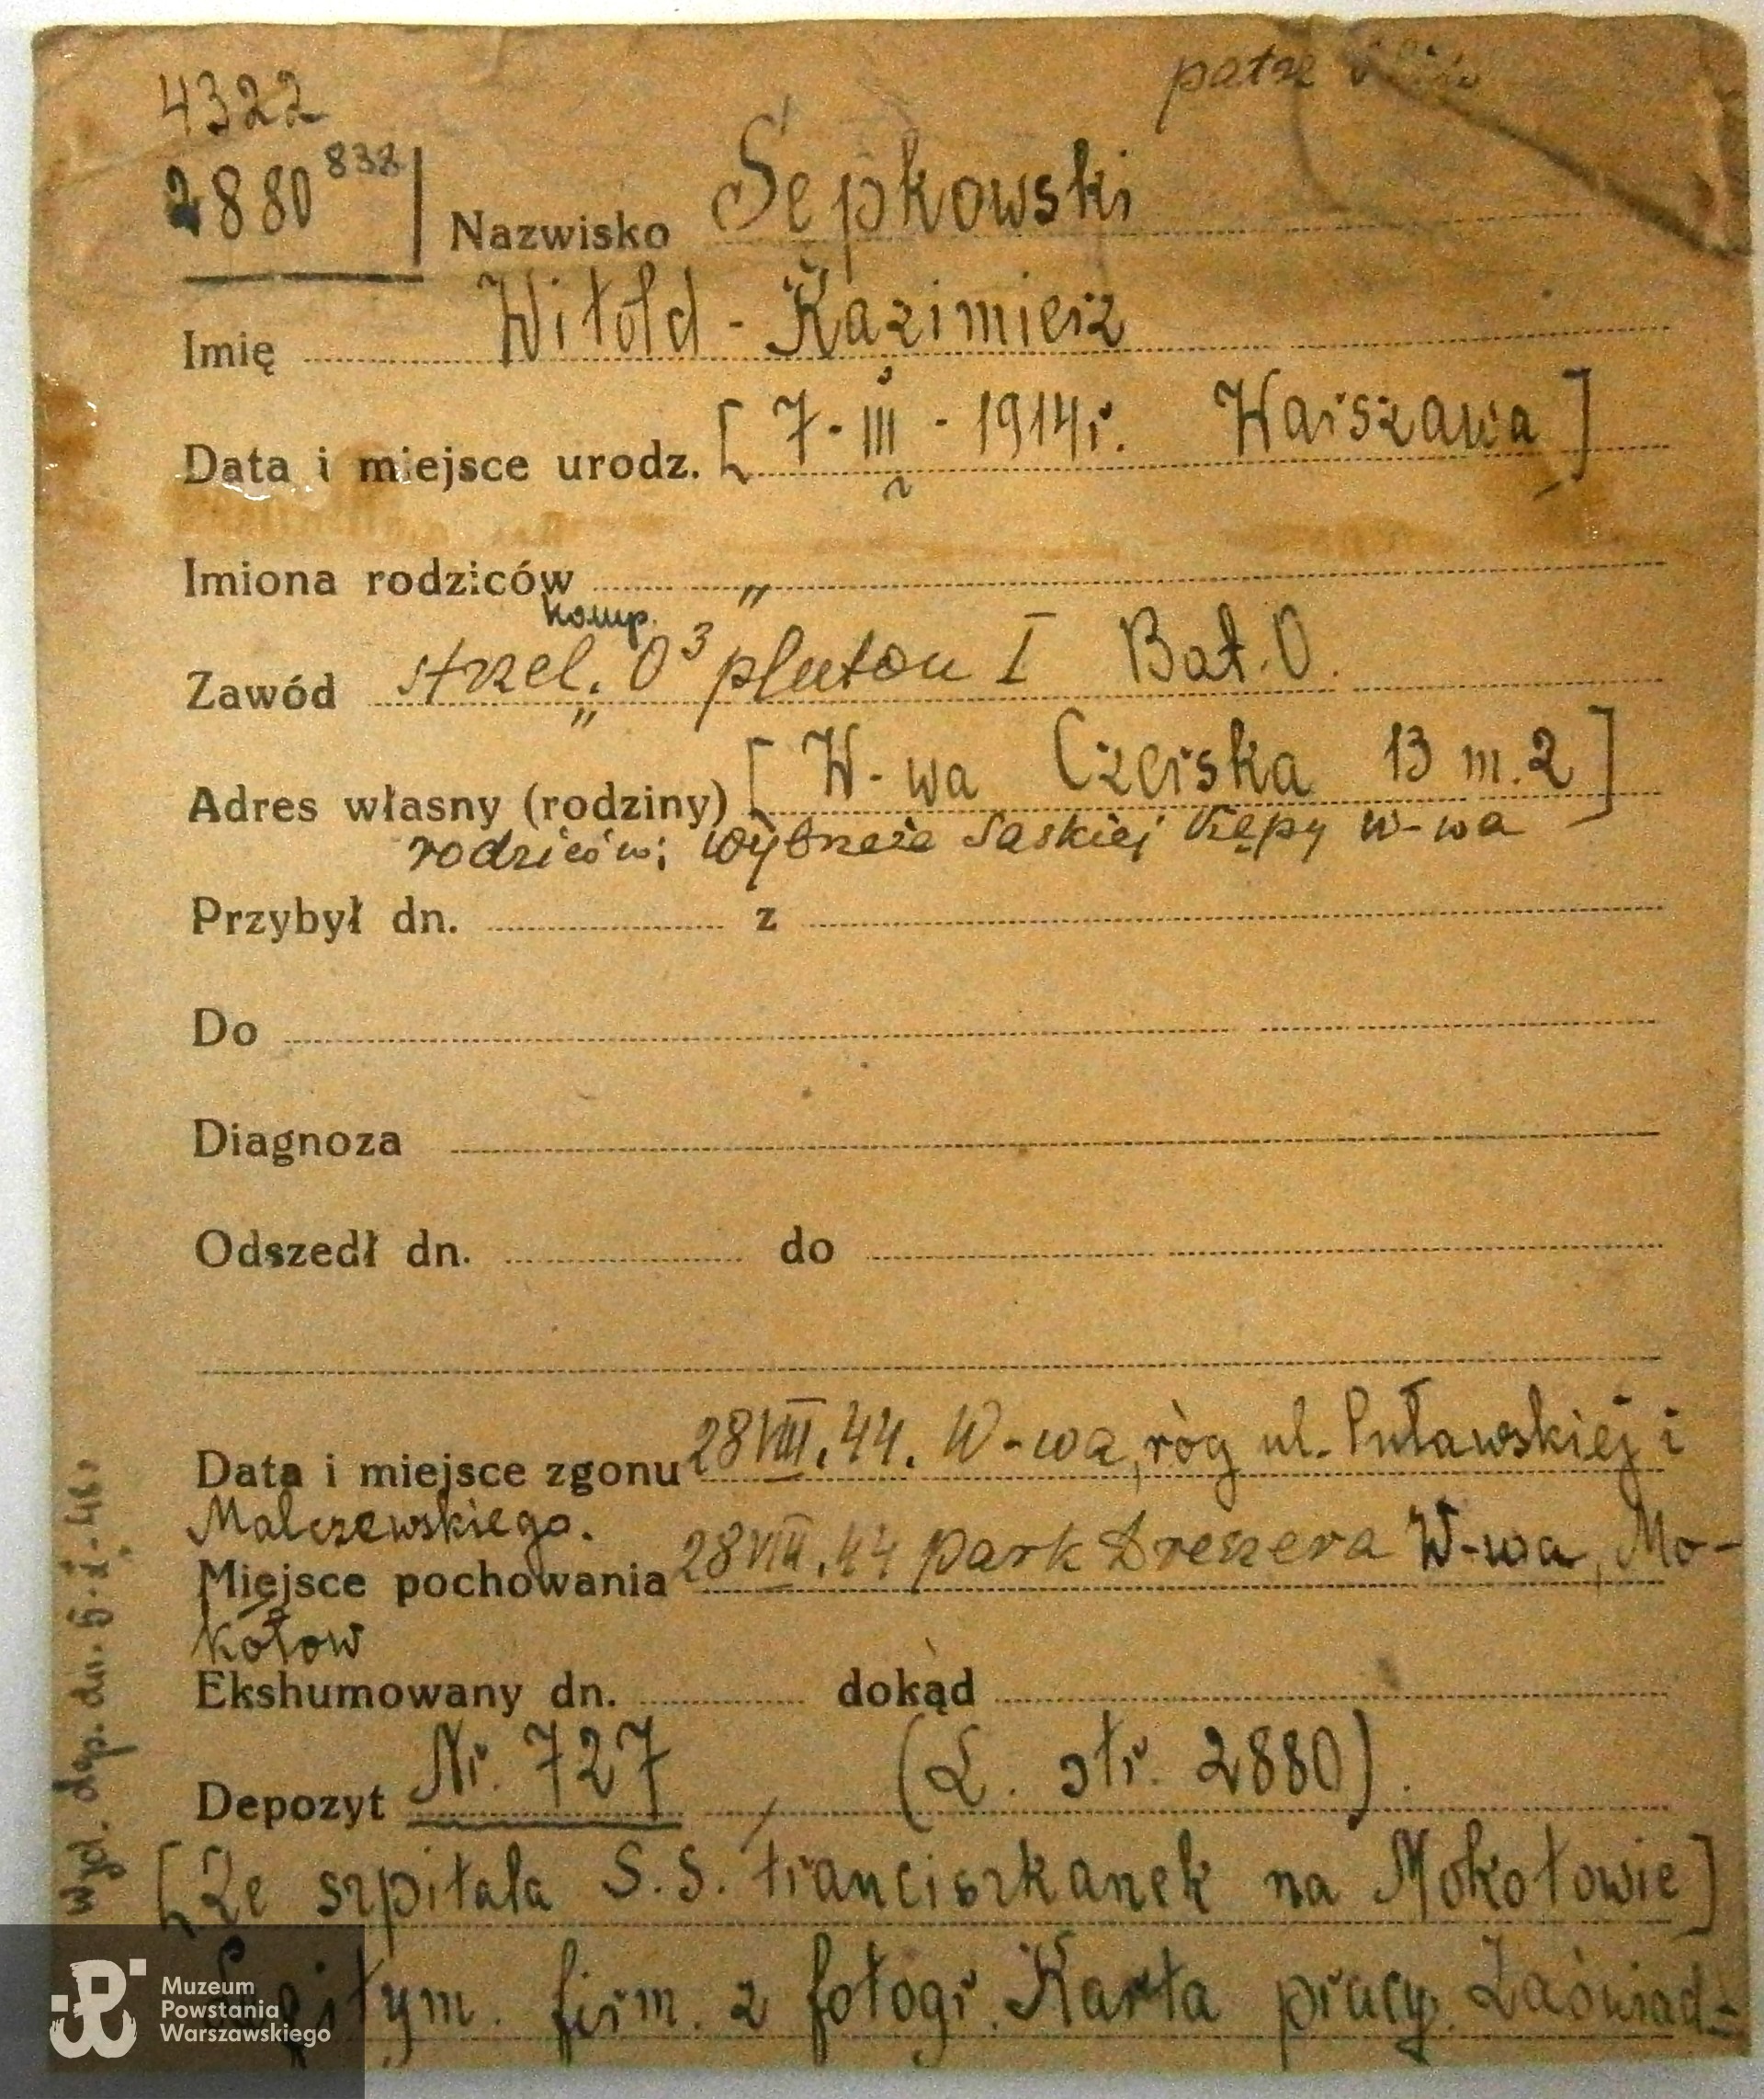 4322
patrz
2880 838
Nazwisko Sępkowski
Imię Witold - Kazimierz
Data i miejsce urodz. [7 - III - 1914r. Warszawa]
Imiona rodziców "
komp.
Zawód strzel. O3 pluton I Bat. O.
"
Adres własny (rodziny) [W-wa Czerska 13 m. 2]
rodziców; Wybrzeże Saskiej Kępy W-wa
Przybył dn. z
Do
Diagnoza
Odszedł dn. do
Data i miejsce zgonu 28 VIII. 44. W-wa, róg ul. Puławskiej i
Malczewskiego.
Miejsce pochowania 28 VIII. 44 park Dreszera W-wa, Mo-
kotow
Ekshumowany dn. dokąd
Depozyt Nr. 727 (L. str. 2880).
[Ze szpitala S.S. franciszkanek na Mokotowie]
Legitym. firm. z fotogr. Karta pracy. Zaświad=
Wyd. dep. dn.
Muzeum
Powstania
Warszawskiego